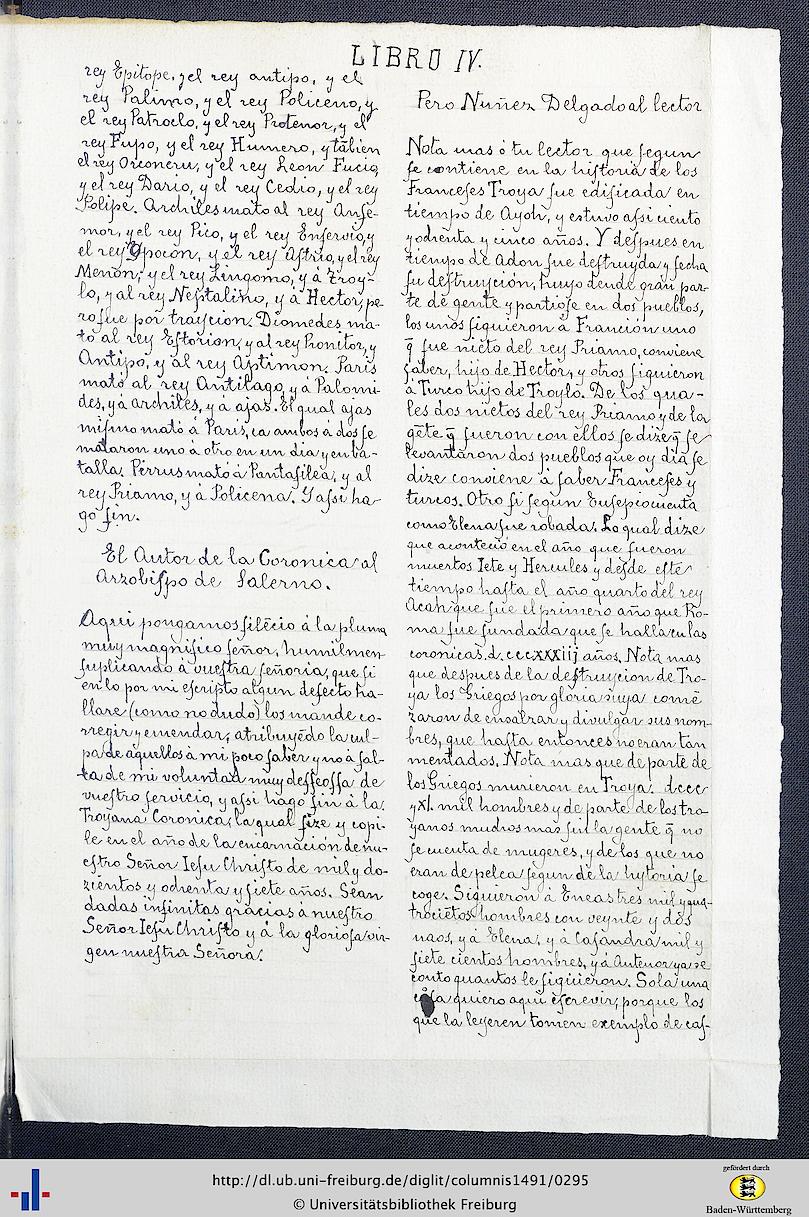 LIBRO IV.
rey Epitope, y el rey antipo, y el
rey Palimo, y el rey Policeno, y
el rey Patroclo, y el rey Protenor, y el
rey Fupo, y el rey Humero, y tãbien
el rey Orconeru, y el rey Leon Fucio,
y el rey Dario, y el rey Cedio, y el rey
Polipe. Archiles mato al rey Anfe-
mor, y el rey Pico, y el rey Enfervio, y
el rey Ypocon, y el rey Aſtrio, y el rey
Menon, y el rey Lingomo, y à Troy-
lo, y al rey Neptalino, y à Hector, pe
ro fue por traycion. Diomedes ma-
tò al rey Eſtorion, y al rey Pronitor, y
Antipo, y al rey Aptimon. Paris
matò al rey Antilago, y à Palomi-
des, y à Archiles, y à ajaz. El qual ajas
miſmo matò à Paris, ca ambos à dos ſe
mataron uno à otro en un dia y en ba-
talla. Pirrus matò à Pantaſilea, y al
rey Priamo, y à Policena. Y aſsi ha-
go fin.
El Autor de la Coronica al
Arzobiſpo de Salerno.
Aqui pongamos ſilẽcio à la pluma
muy magnifico ſeñor, humilmen
ſuplicando à vueſtra ſeñoria, que ſi
en lo por mi eſcripto algun defecto ha-
llare (como no dudo) los mande co-
rregir y emendar, atribuyẽdo la cul-
pa de aquellos à mi poco ſaber y no à fal-
ta de mi voluntad muy deſſeoſſa de
vueſtro ſervicio, y aſsi hago fin à la
Troyana Coronica, la qual fize y copi-
le en el año de la encarnaciòn de nu-
eſtro Señor Ieſu Chriſto de mil y do-
zientos y ochenta y ſiete años. Sean
dadas infinitas gracias à nueſtro
Señor Ieſu Chriſto y à la glorioſa vir-
gen nueſtra Señora.
Pero Nuñez Delgado al lector
Nota mas ò tu lector que ſegun
ſe contiene en la hiſtoria de los
Franceſes Troya fue edificada en
tiempo de Ayoth, y eſtuvo aſsi ciento
y ochenta y cinco años. Y deſpues en
tiempo de Adon fue deſtruyda y fecha
ſu deſtruyciòn, huyo dende gran par-
te de gente y partioſe en dos pueblos,
los unos ſiguieron à Franciòn uno
q̃ fue nieto del rey Priamo, conviene
ſaber, hijo de Hector, y otros ſiguieron
à Turco hijo de Troylo. De los qua-
les dos nietos del rey Priamo y de la
gẽte q̃ fueron con ellos ſe dize q̃ ſe
levantaron dos pueblos que oy dia ſe
dize conviene à ſaber Franceſes y
turcos. Otro ſi ſegun Euſepio cuenta
como Elena fue robada. Lo qual dize
que aconteciò en el año que fueron
muertos Iete y Hercules y deſde eſte
tiempo haſta el año quarto del rey
Acah que fue el primero año que Ro-
ma fue fundada que ſe halla en las
coronicas. d. cccxxxiij años. Nota mas
que deſpues de la deſtruycion de Tro-
ya los Griegos por gloria ſuya comẽ
zaron de enſalzar y divulgar sus nom-
bres, que haſta entonces no eran tan
mentados. Nota mas que de parte de
los Griegos murieron en Troya. dccc
y xl. mil hombres y de parte de los tro-
yanos muchos mas ſin la gente q̃ no
ſe cuenta de mugeres, y de los que no
eran de pelea ſegun de la hyſtoria ſe
coge. Siguieron à Eneas tres mil y qua-
trociẽtos hombres con veynte y dos
naos, y à Elena, y à Caſandra mil y
ſiete cientos hombres, y à Antenor ya ſe
conto quantos le ſiguieron. Sola una
coſa quiero aqui eſcrevir, porque los
que la leyeren tomen exemplo de caſ-
http://dl.ub.uni-freiburg.de/diglit/columnis1491/0295
© Universitätsbibliothek Freiburg
gefördert durch
Baden-Württemberg